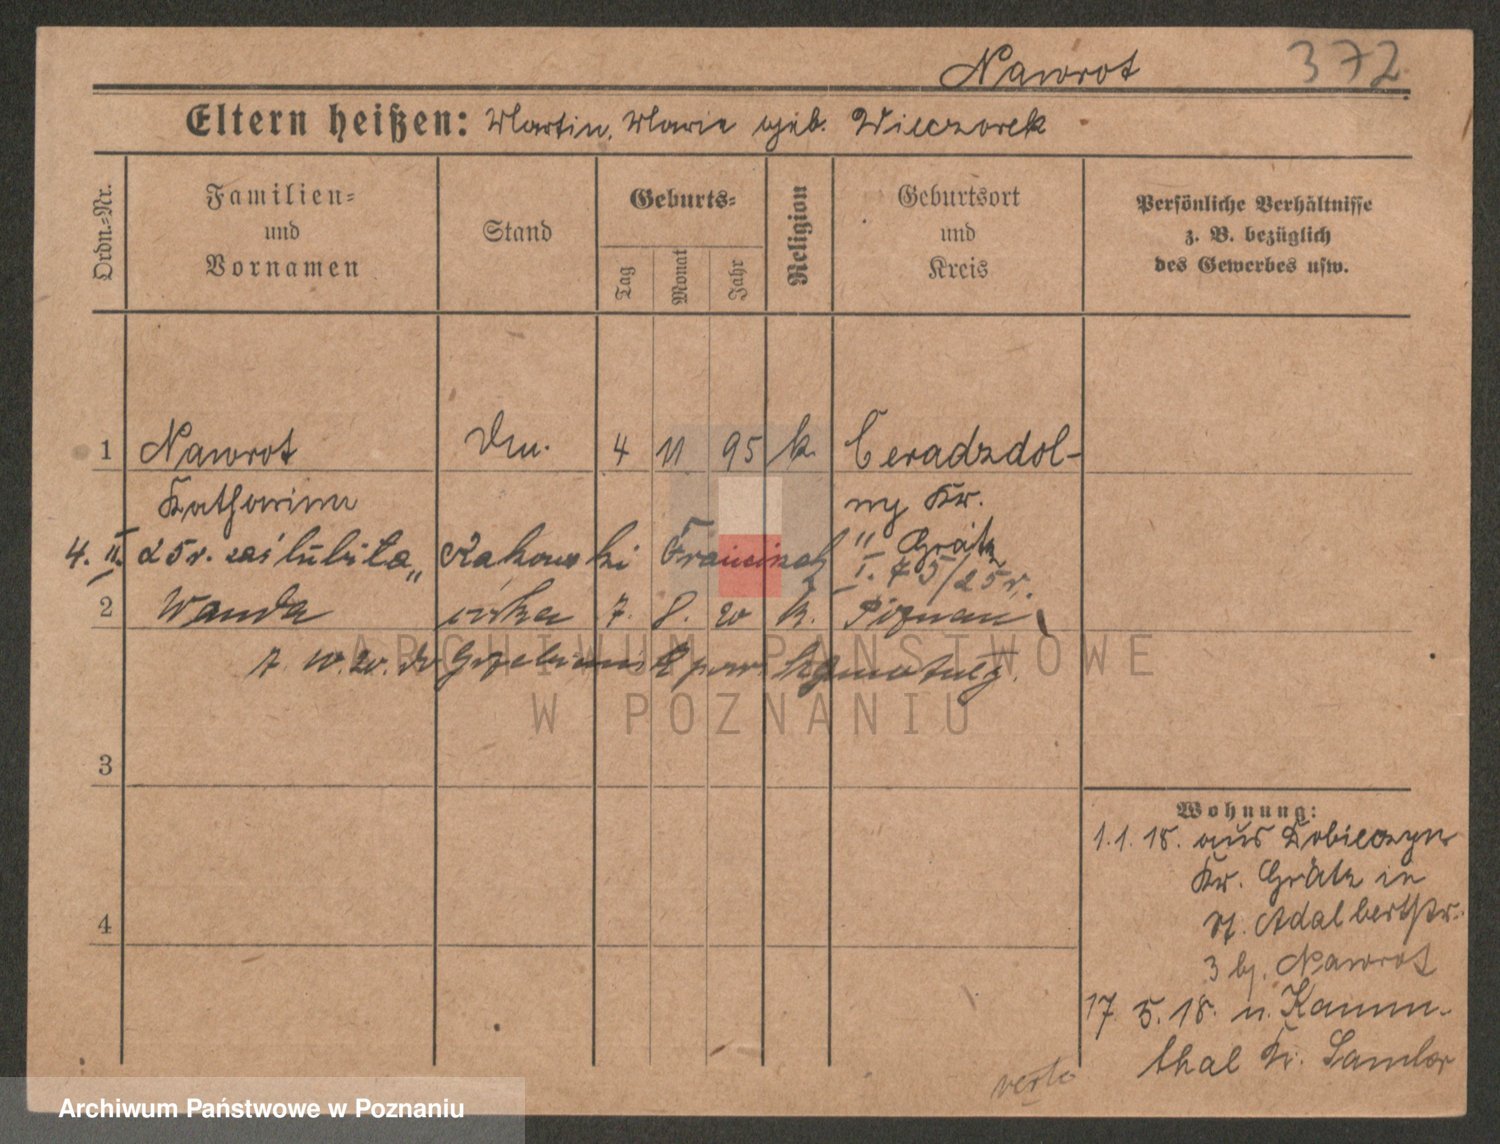 Nawrot 372
Eltern heißen: Martin, Marie geb. Wieczorek
Ordn.-Nr.
Familien-
und
Vornamen
Stand
Geburts-
Tag
Monat
Jahr
Religion
Geburtsort
und
Kreis
Persönliche Verhältnisse
z. B. bezüglich
des Gewerbes usw.
1 Nawrot 4 11 95 k. Ceradzdol-
Katharina ny Kr.
" Grätz
4. II. 25 r. zaślubiła „ Rakowski Franciszek I. 75/25 r.
2 Wanda córka 7. 8. 20 k. Poznań
7. 10. 20. do pow. Szamotuły.
3
4
Wohnung:
1.1.18. aus Dobieczyn
Kr. Grätz in
Adalbertstr.
3 bj. Nawrot
17. 5. 18. n. Kamm-
thal Kr. Samter
verte
ARCHIWUM PAŃSTWOWE
W POZNANIU
Archiwum Państwowe w Poznaniu